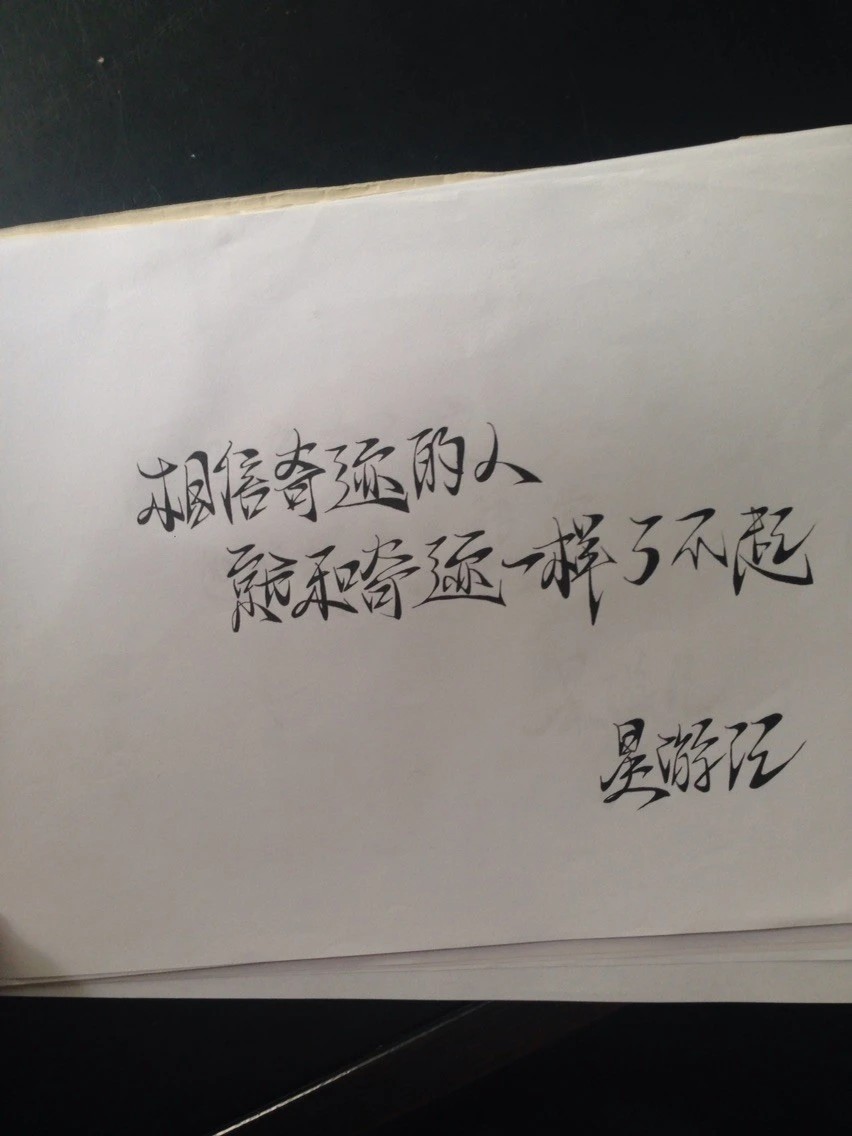 相信奇迹的人
就和奇迹一样了不起
星游记